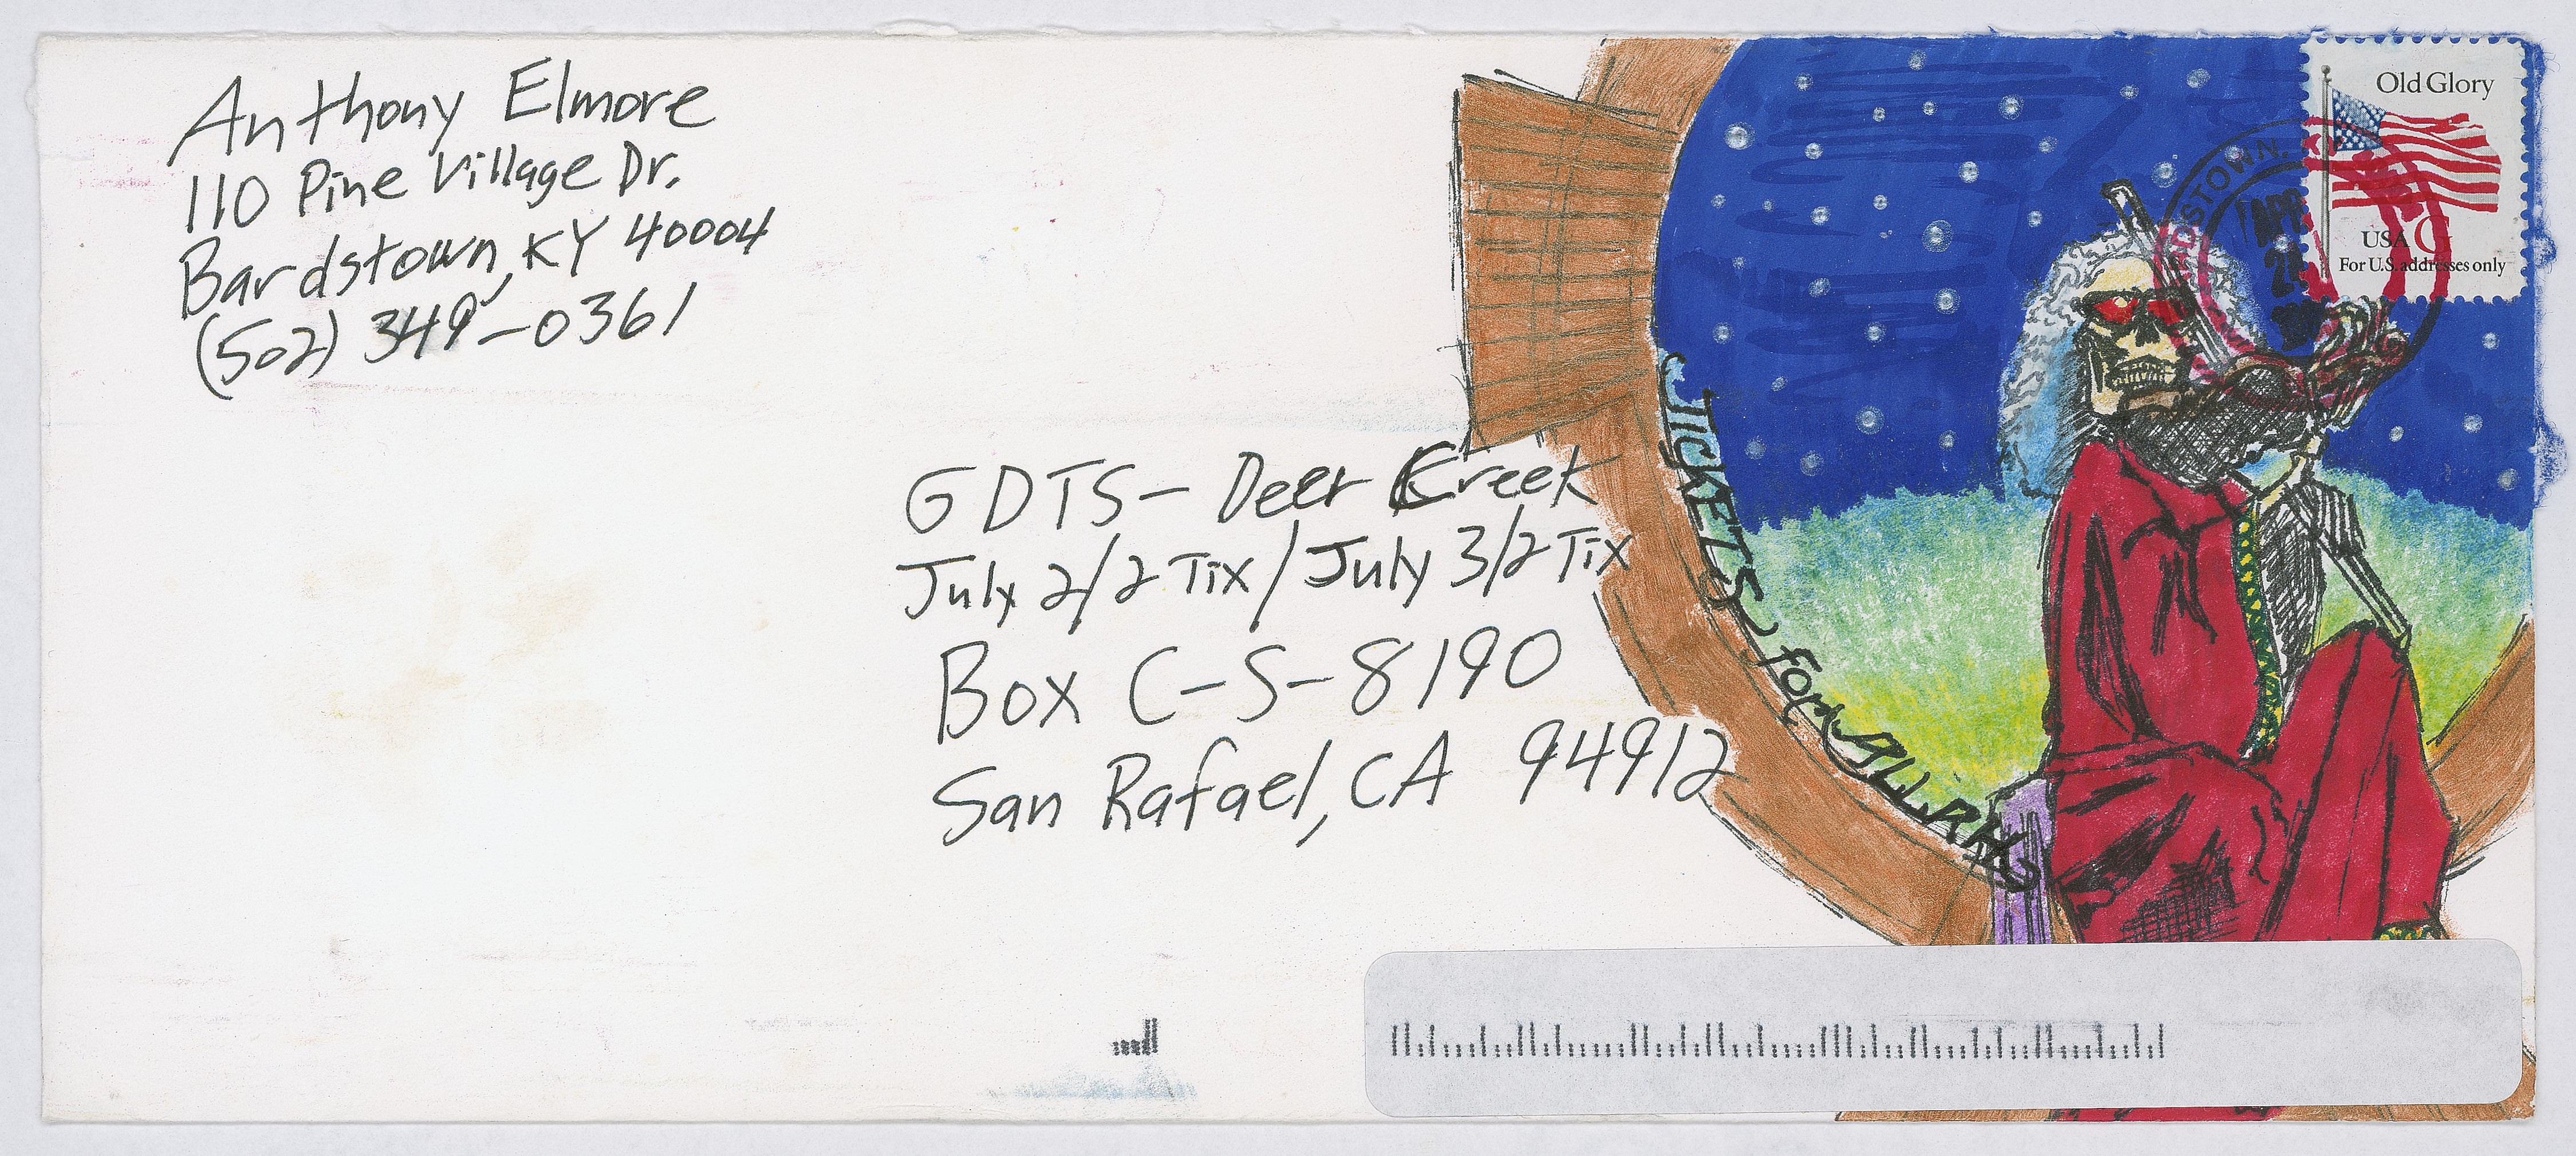 Anthony Elmore
110 Pine Village Dr.
Bardstown, KY 40004
(502) 349-0361
Old Glory
USA G
For U.S. addresses only
DSTOWN,
APR
GDTS- Deer Creek
July 2/2 Tix / July 3/2 Tix
Box C-S-8190
San Rafael, CA 94912
TICKETS for ALL